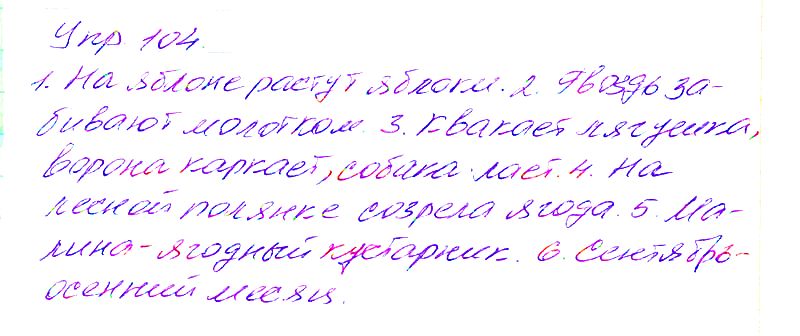 Упр 104.
1. На яблоне растут яблоки. 2. Гвоздь за-
бивают молотком. 3. Квакает лягушка,
ворона каркает, собака лает. 4. На
лесной полянке созрела ягода. 5. Ма-
лина - ягодный кустарник. 6. Сентябрь -
осенний месяц.